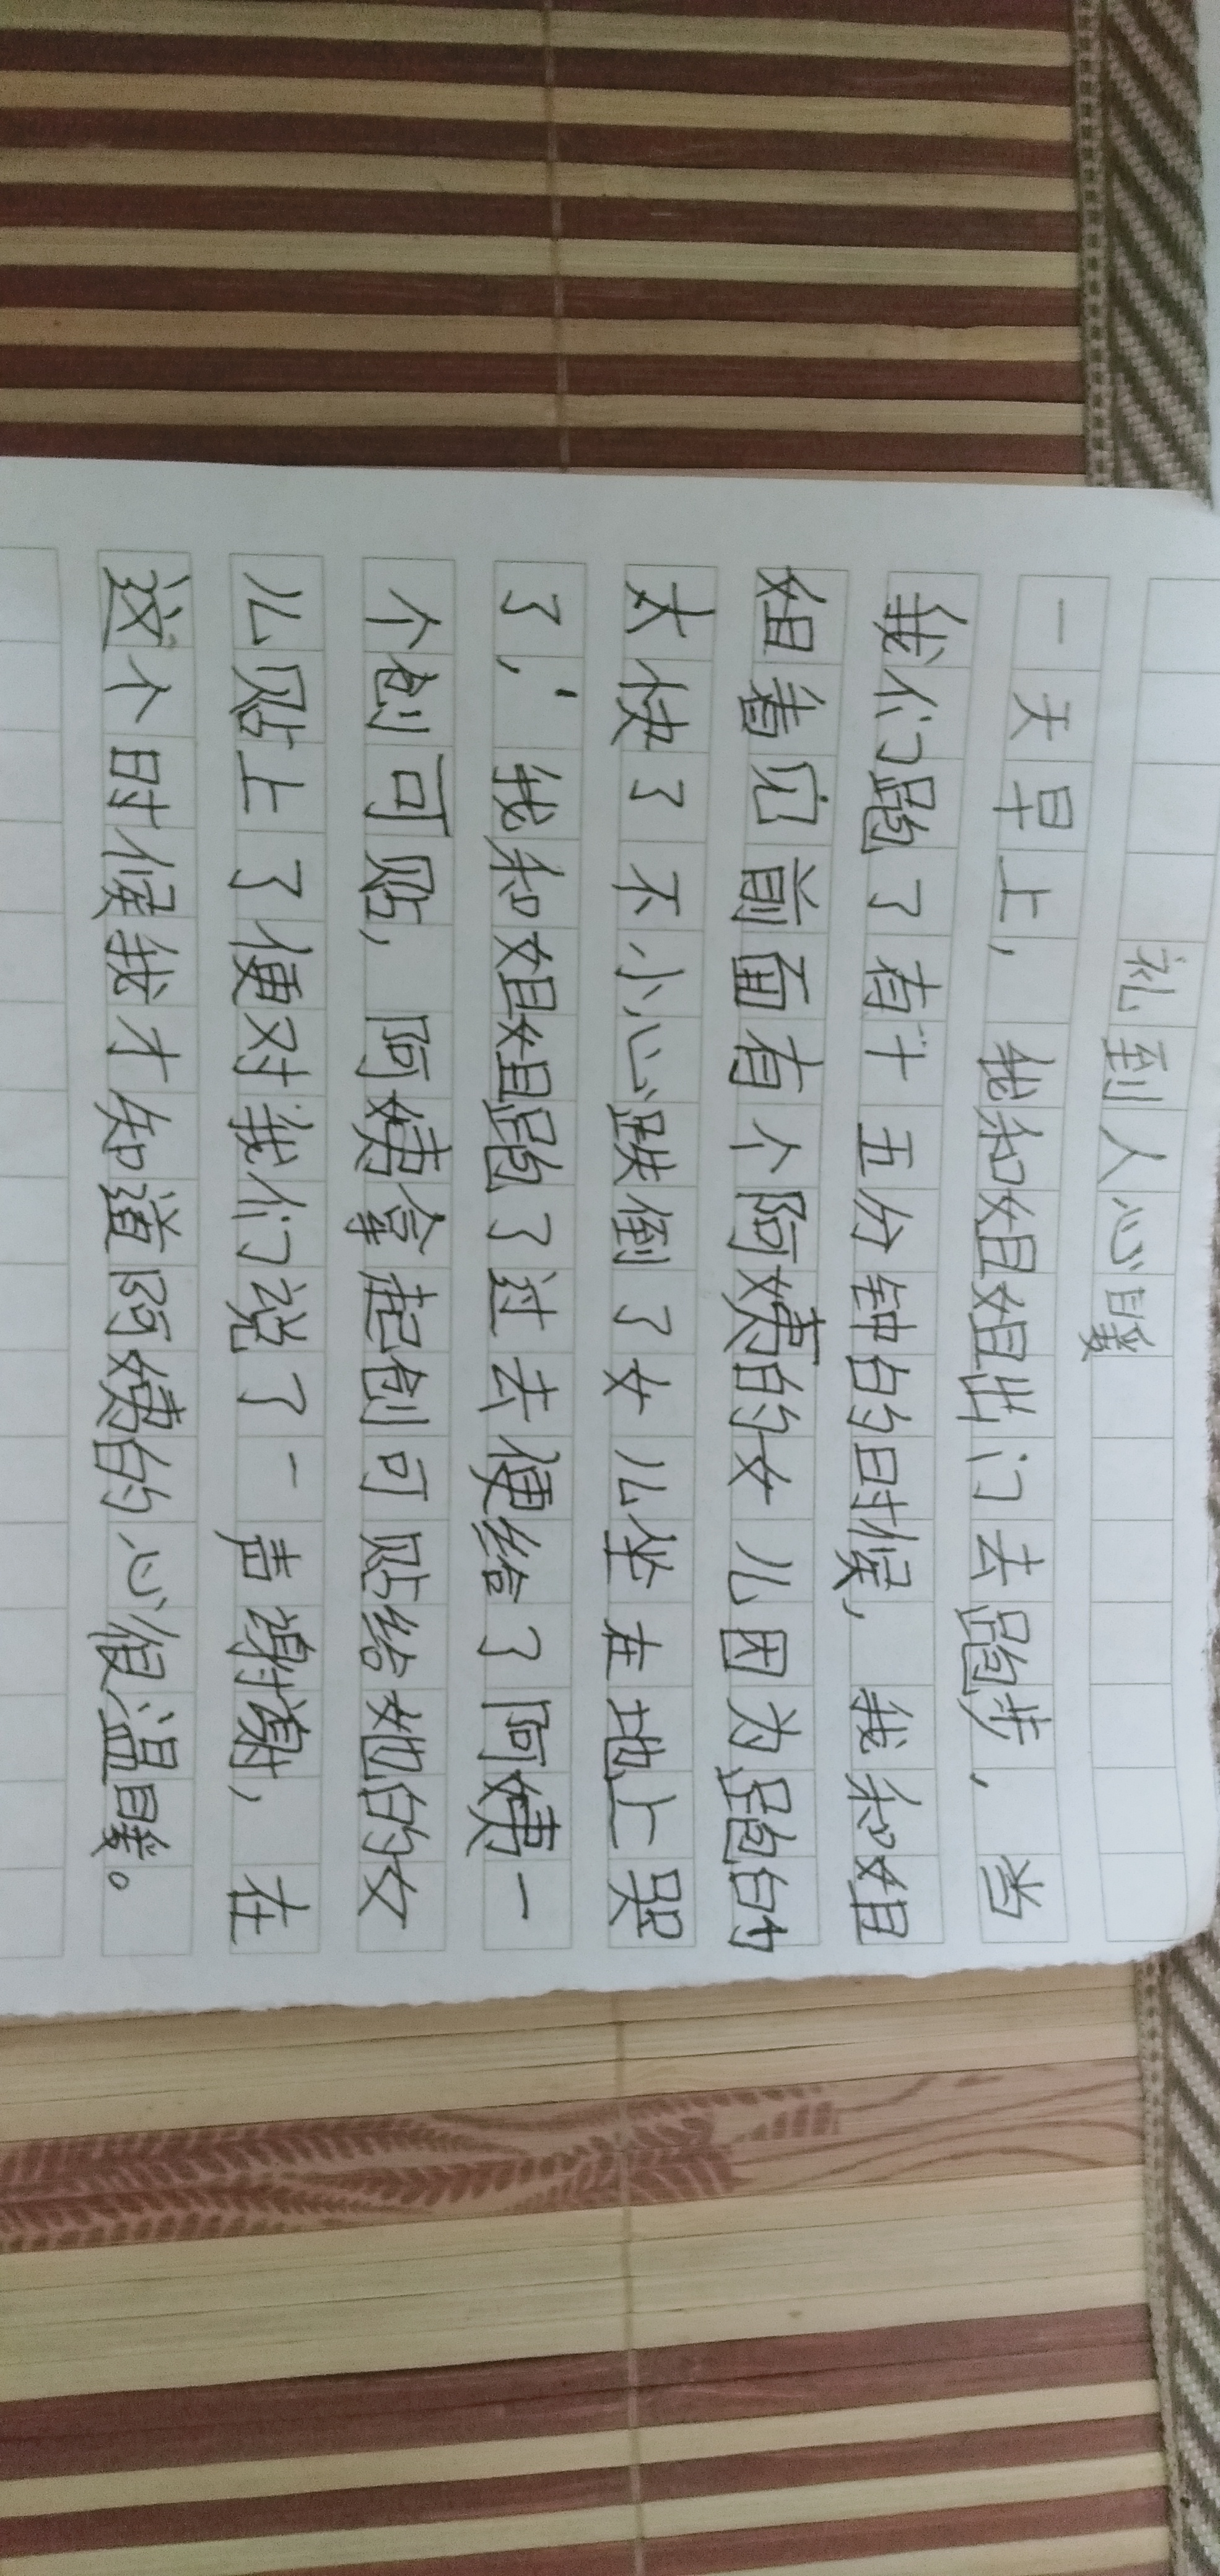 礼到人心暖
一天早上，我和姐姐出门去跑步，当
我们跑了有十五分钟的时候，我和姐
姐看见前面有个阿姨的女儿因为跑的
太快了不小心跌倒了女儿坐在地上哭
了，我和姐姐跑了过去便给了阿姨一
个创可贴，阿姨拿起创可贴给她的女
儿贴上了便对我们说了一声谢谢，在
这个时候我才知道阿姨的心很温暖。